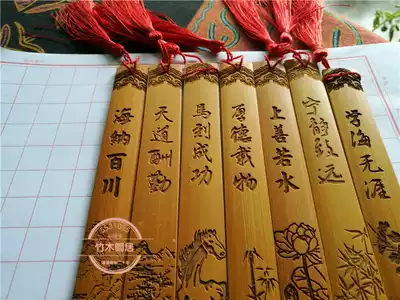 海纳百川
天道酬勤
馬到成功
厚德载物
上善若水
宁静致远
学海无涯
竹木阁居